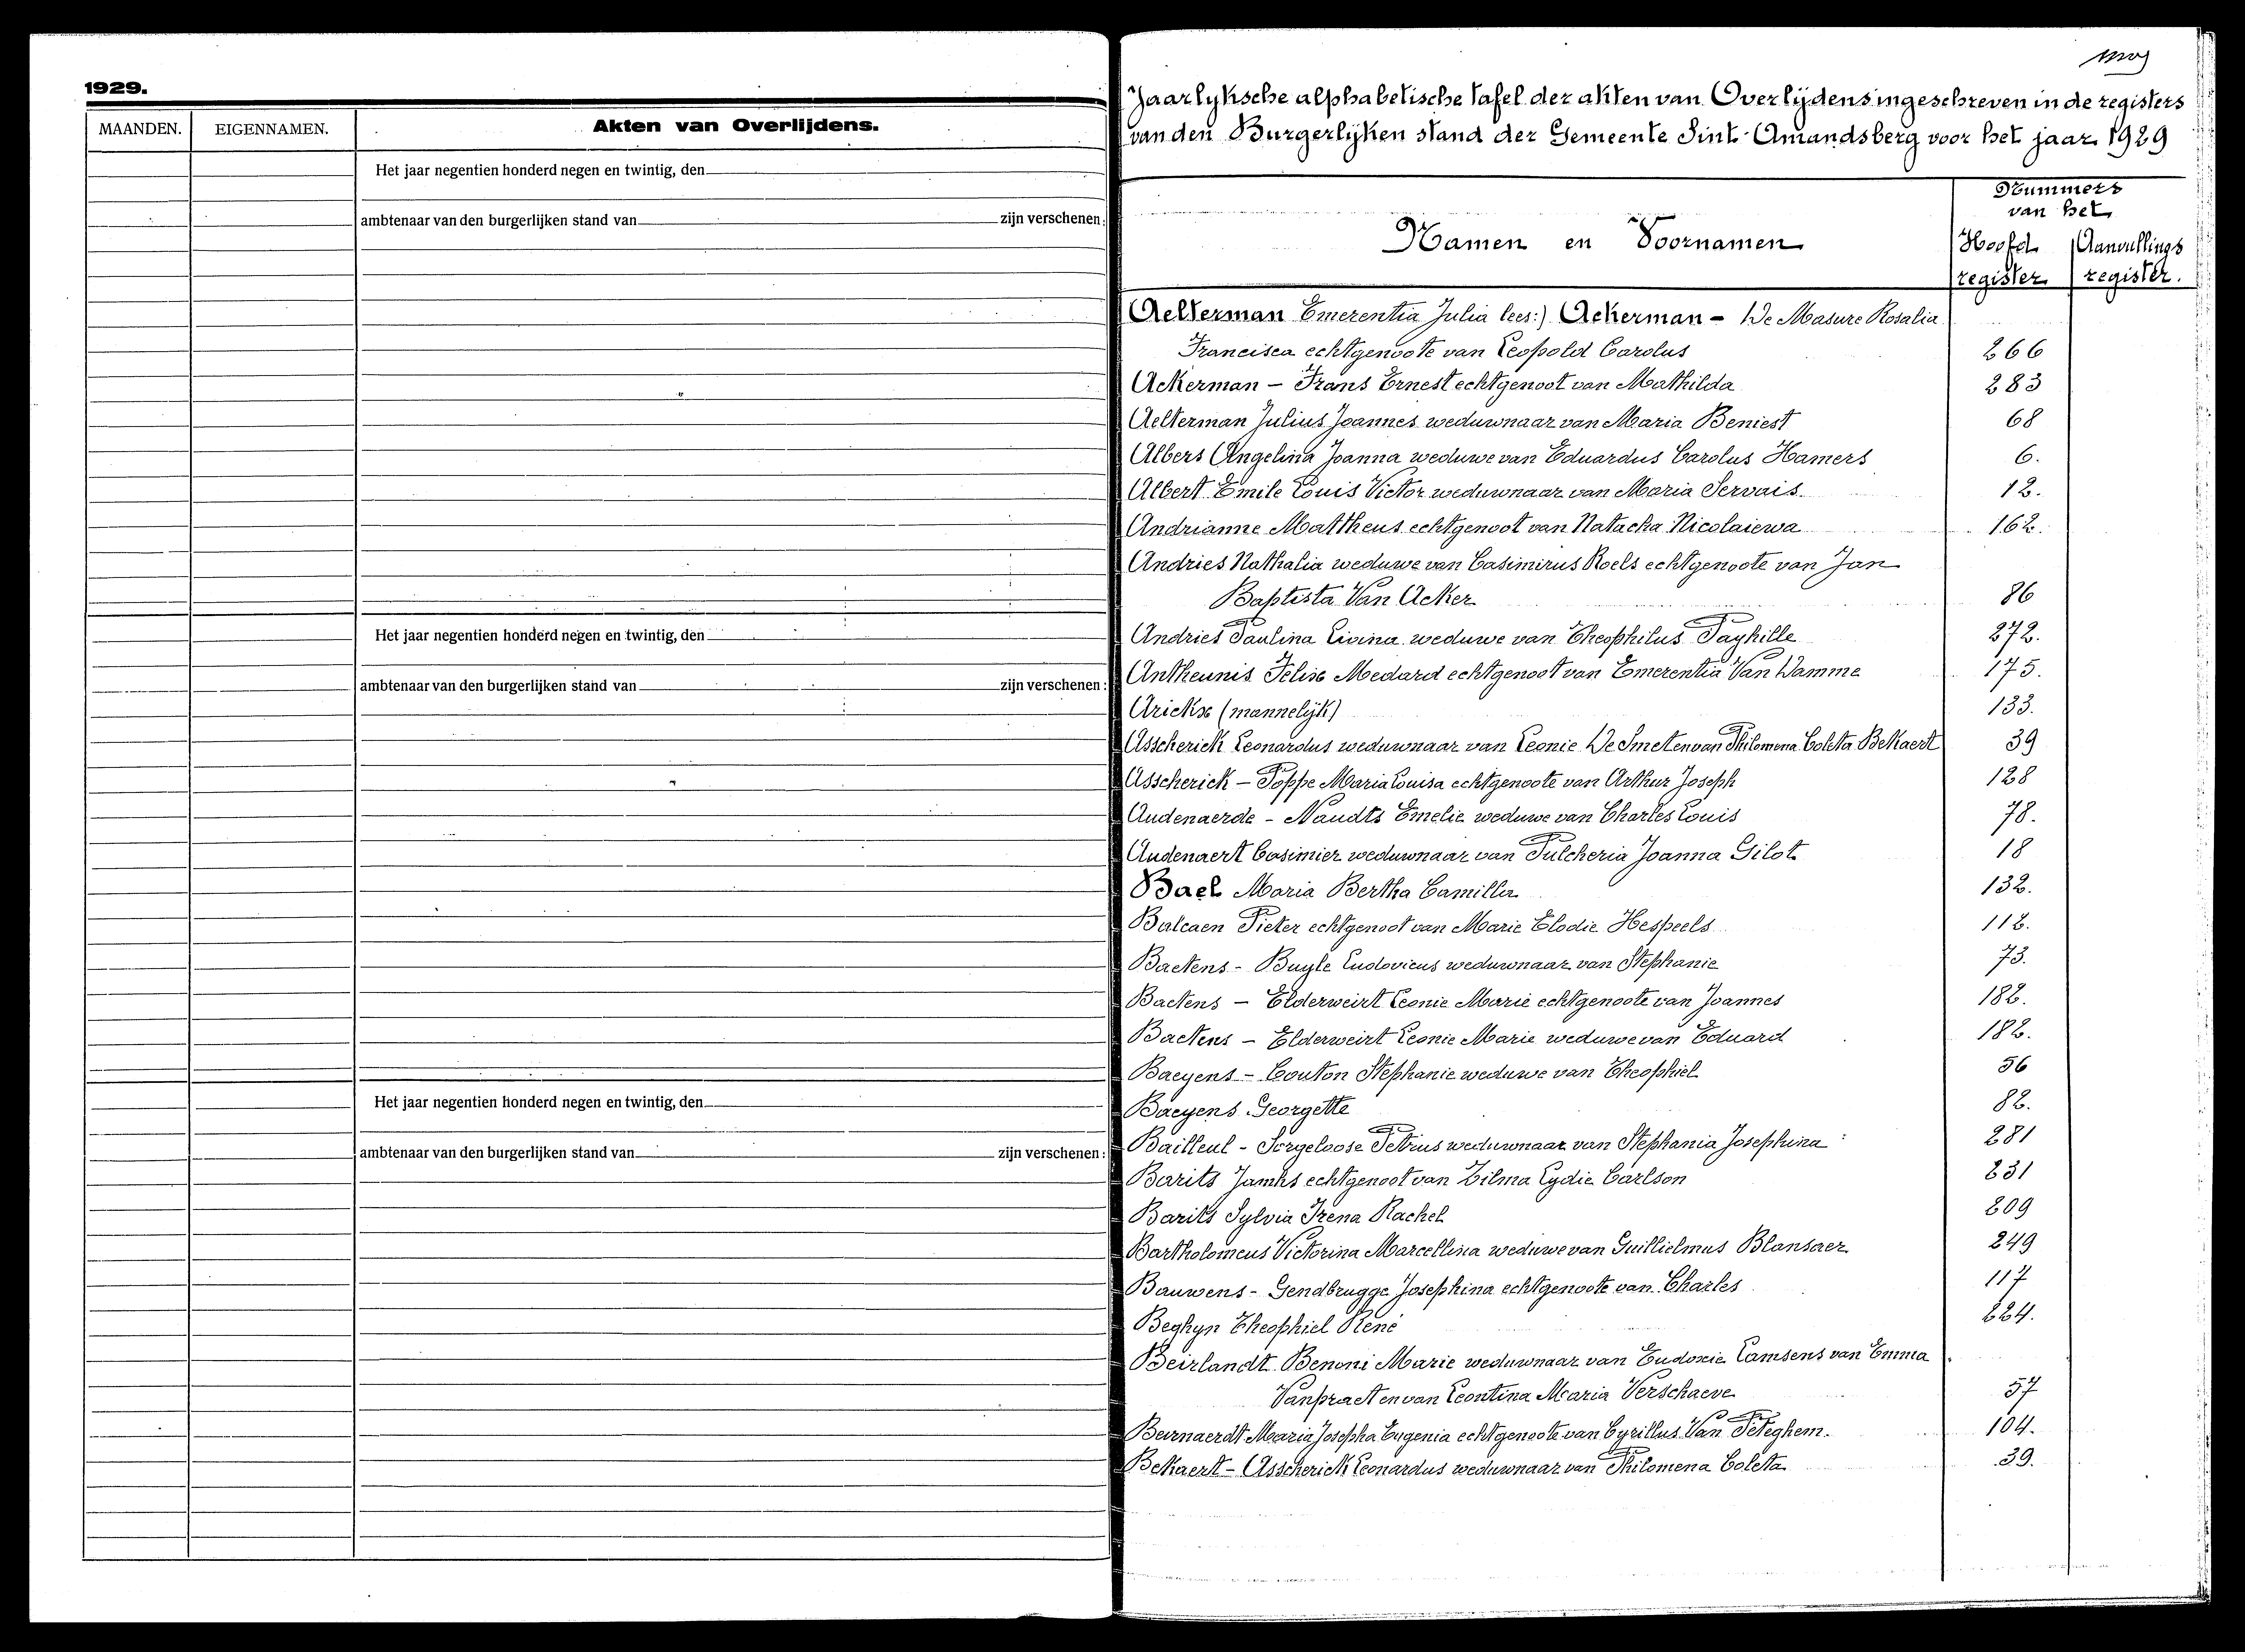 1929.
MAANDEN. EIGENNAMEN. Akten van Overlijdens.
Het jaar negentien honderd negen en twintig, den
ambtenaar van den burgerlijken stand van zijn verschenen:
Het jaar negentien honderd negen en twintig, den
ambtenaar van den burgerlijken stand van zijn verschenen:
Het jaar negentien honderd negen en twintig, den
ambtenaar van den burgerlijken stand van zijn verschenen:
Jaarlyksche alphabetische tafel der akten van Overlijdens ingeschreven in de registers
van den Burgerlijken stand der Gemeente Sint-Amandsberg voor het jaar 1929
Nummers
van het
Namen en Voornamen Hoofd Aanvullings
register register.
Aelterman Emerentia Julia lees:) Ackerman - De Masure Rosalia
Francisca echtgenoote van Leopold Carolus 266
Ackerman - Frans Ernest echtgenoot van Mathilda 283
Aelterman Julius Joannes weduwnaar van Maria Beniest 68
Albers Angelina Joanna weduwe van Eduardus Carolus Hamers 6.
Albert Emile Louis Victor weduwnaar van Maria Servais. 12.
Andrianne Mattheus echtgenoot van Natacha Nicolaiewa 162.
Andries Nathalia weduwe van Casimirus Roels echtgenoote van Jan
Baptista Van Acker 86
Andries Paulina Livina weduwe van Theophilus Payhille 272.
Antheunis Felix Medard echtgenoot van Emerentia Van Damme 175.
Arickx (mannelijk) 133.
Asscherick Leonardus weduwnaar van Leonie De Smet en van Philomena Coleta Bekaert 39
Asscherick - Poppe Maria Louisa echtgenoote van Arthur Joseph 128
Audenaerde - Naudts Emelie weduwe van Charles Louis 78.
Audenaert Casimier weduwnaar van Pulcheria Joanna Gilot 18
Bael Maria Bertha Camilla 132.
Balcaen Pieter echtgenoot van Marie Elodie Hespeels 112.
Baetens - Buyle Ludovicus weduwnaar van Stephanie 73.
Baetens - Elderweirt Leonie Marie echtgenoote van Joannes 182.
Baetens - Elderweirt Leonie Marie weduwe van Eduard 182.
Baeyens - Couton Stephanie weduwe van Theophiel 56
Baeyens Georgette 82.
Bailleul - Sorgeloose Petrus weduwnaar van Stephania Josephina 281
Barits Jamhs echtgenoot van Zilma Lydie Carlson 231
Barits Sylvia Irena Rachel 209
Bartholomeus Victorina Marcellina weduwe van Guillielmus Blansaer 249
Bauwens - Gendbrugge Josephina echtgenoote van Charles 117
Beghyn Theophiel René 224.
Beirlandt Benoni Marie weduwnaar van Eudoxie Lamsens van Emma
Vanpraet en van Leontina Maria Verschaeve 57
Beirnaerdt Maria Josepha Eugenia echtgenoote van Cyrillus Van Peteghem. 104.
Bekaert - Asscherick Leonardus weduwnaar van Philomena Coleta 39.